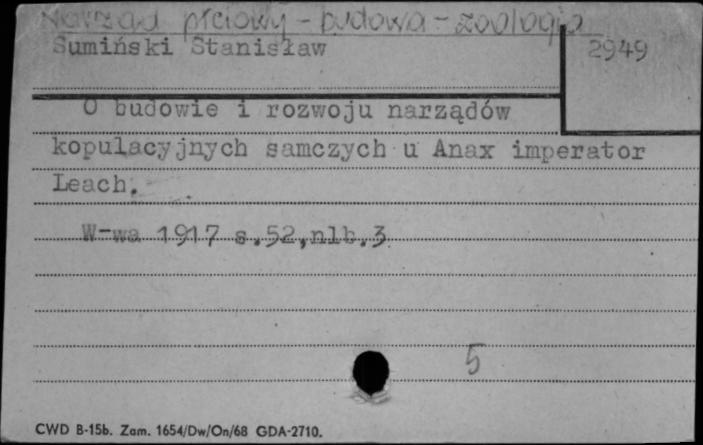 Narząd płciowy - budowa - zoologia
Sumiński Stanisław
2949
O budowie i rozwoju narządów
kopulacyjnych samczych u Anax imperator
Leach.
W-wa 1917 s.52,nlb.3
5
CWD B-15b. Zam. 1654/Dw/On/68 GDA-2710.